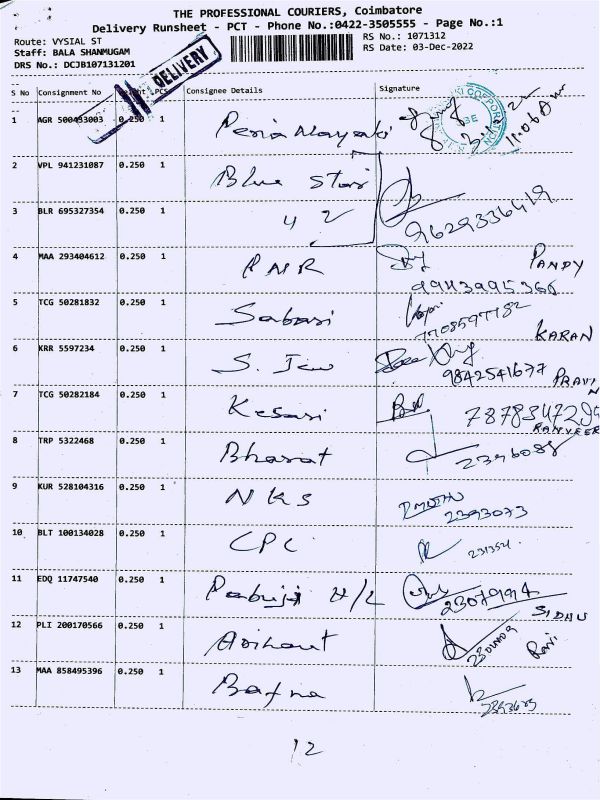 THE PROFESSIONAL COURIERS, Coimbatore
Delivery Runsheet - PCT - Phone No.:0422-3505555 - Page No.:1
Route: VYSIAL ST
RS No.: 1071312
Staff: BALA SHANMUGAM
RS Date: 03-Dec-2022
DRS No.: DCJB107131201
DELIVERY
S No Consignment No PCS Consignee Details Signature
1 AGR 500493003 0.250 1 Peria Nayaki
11:06 Am
2 VPL 941231087 0.250 1 Blue Star
3 BLR 695327354 0.250 1 9629336419
4 MAA 293404612 0.250 1 PNR PANDY
9943995366
5 TCG 50281832 0.250 1 Sabari
7708597182 KARAN
6 KRR 5597234 0.250 1 S. Jew
9842541677 PRAVIN
7 TCG 50282184 0.250 1 Kesari
RANVEER
8 TRP 5322468 0.250 1 Bharat
9 KUR 528104316 0.250 1 NKS
2393073
10 BLT 100134028 0.250 1 CPC
11 EDQ 11747540 0.250 1
SIDHU
12 PLI 200170566 0.250 1 Arihant
Ravi
13 MAA 858495396 0.250 1 Bafna
12